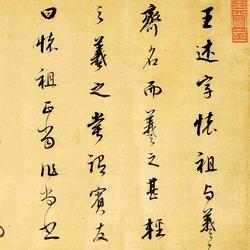 王述字懷祖與羲
齊名而羲之甚輕
之羲之常謂賓友
曰懷祖正當作尚書